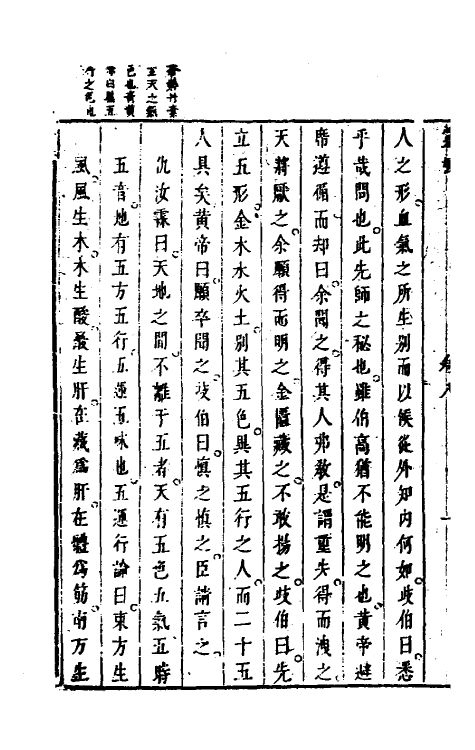 蒼黅丹素
玄天之氣
色也青黃
赤白黑五
行之色也
人之形血氣之所生別而以候從外知内何如歧伯曰悉
乎哉問也此先師之秘也雖伯高猶不能明之也黄帝避
席遵循而却曰余聞之得其人弗敎是謂重失得而洩之
天將厭之余願得而明之金匱藏之不敢揚之歧伯曰先
立五形金木水火土別其五色異其五行之人而二十五
人具矣黄帝曰願卒聞之歧伯曰慎之慎之臣請言之
仇汝霖曰天地之間不離于五者天有五色五氣五時
五音地有五方五行五運五味也五運行論曰東方生
風風生木木生酸酸生肝在藏爲肝在體爲筋南方生